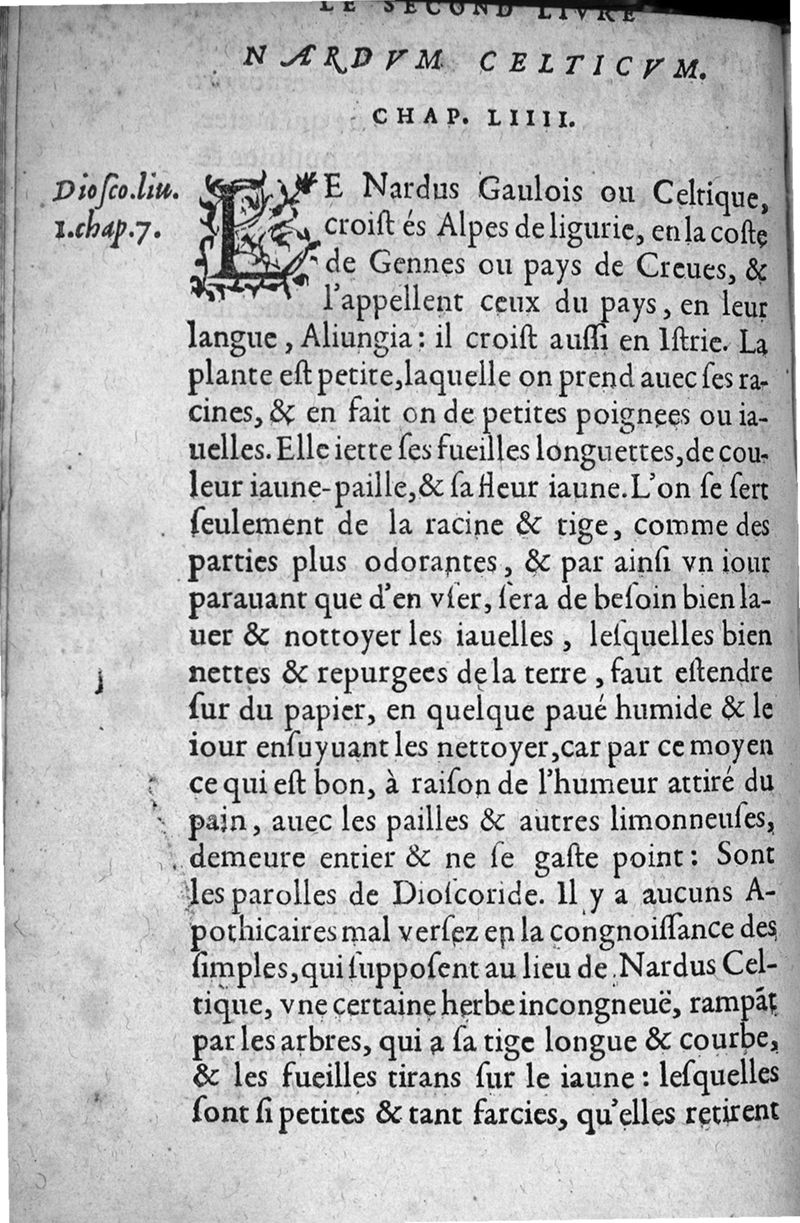 LE SECOND LIVRE
NARDVM CELTICVM.
CHAP. LIIII.
Dioſco.liu.
1.chap.7.
LE Nardus Gaulois ou Celtique,
croiſt és Alpes de ligurie, en la coſte
de Gennes ou pays de Creues, &
l'appellent ceux du pays, en leur
langue, Aliungia: il croiſt auſſi en Iſtrie. La
plante eſt petite, laquelle on prend auec ſes ra-
cines, & en fait on de petites poignees ou ia-
uelles. Elle iette ſes fueilles longuettes, de cou-
leur iaune-paille, & ſa fleur iaune. L'on ſe ſert
ſeulement de la racine & tige, comme des
parties plus odorantes, & par ainſi vn iour
parauant que d'en vſer, ſera de beſoin bien la-
uer & nottoyer les iauelles, leſquelles bien
nettes & repurgees de la terre, faut eſtendre
ſur du papier, en quelque paué humide & le
iour enſuyuant les nettoyer, car par ce moyen
ce qui eſt bon, à raiſon de l'humeur attiré du
pain, auec les pailles & autres limonneuſes,
demeure entier & ne ſe gaſte point: Sont
les parolles de Dioſcoride. Il y a aucuns A-
pothicaires mal verſez en la congnoiſſance des
ſimples, qui ſuppoſent au lieu de Nardus Cel-
tique, vne certaine herbe incongneuë, rampāt
par les arbres, qui a ſa tige longue & courbe,
& les fueilles tirans ſur le iaune: leſquelles
ſont ſi petites & tant farcies, qu'elles retirent